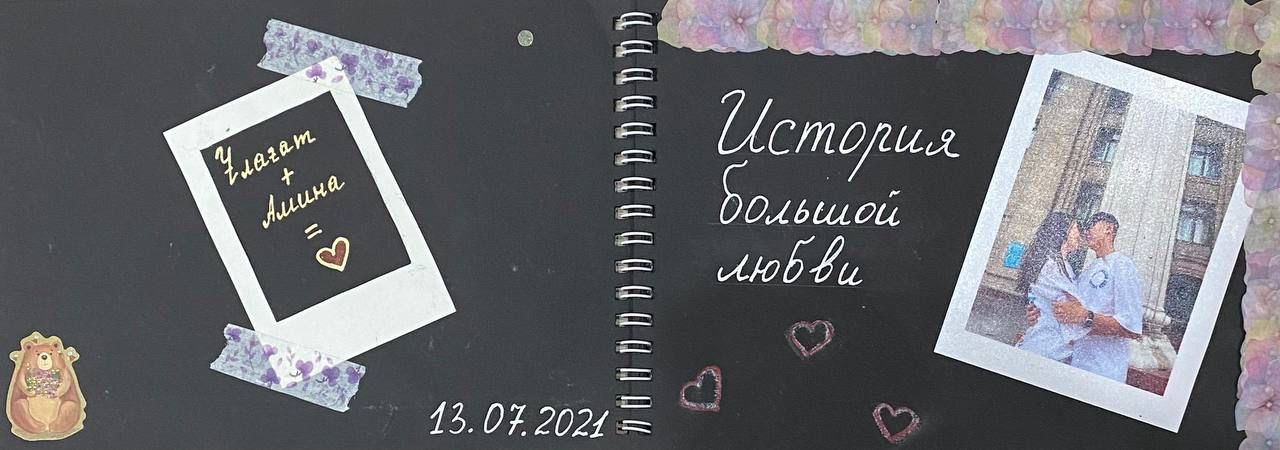 Улагат
+
Амина
=
13.07.2021
История
большой
любви